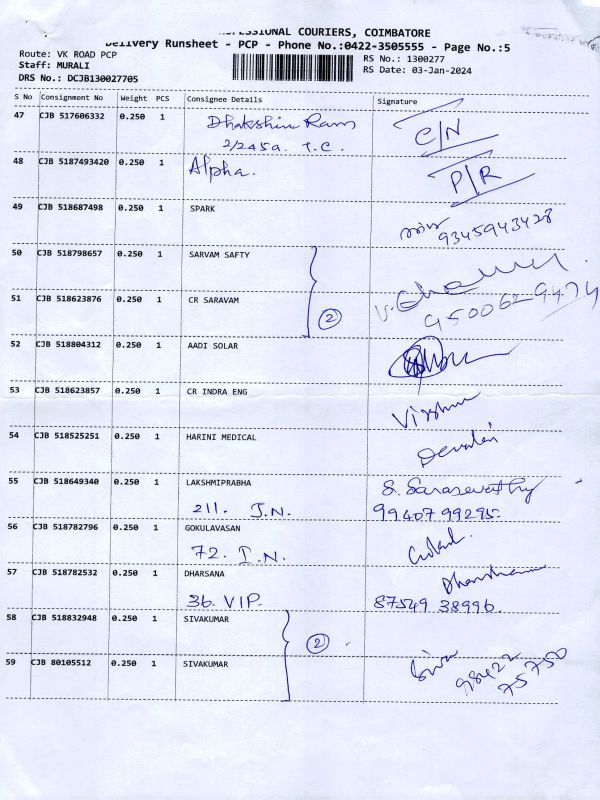 COURIERS, COIMBATORE
Delivery Runsheet - PCP - Phone No.:0422-3505555 - Page No.:5
Route: VK ROAD PCP
RS No.: 1300277
Staff: MURALI
RS Date: 03-Jan-2024
DRS No.: DCJB130027705
S No Consignment No Weight PCS Consignee Details Signature
47 CJB 517606332 0.250 1 Dhakshin Ram C/N
2/245a. T.C.
48 CJB 5187493420 0.250 1 Alpha. P/R
49 CJB 518687498 0.250 1 SPARK
9345943428
50 CJB 518798657 0.250 1 SARVAM SAFTY
51 CJB 518623876 0.250 1 CR SARAVAM
2 9500629474
52 CJB 518804312 0.250 1 AADI SOLAR
53 CJB 518623857 0.250 1 CR INDRA ENG
54 CJB 518525251 0.250 1 HARINI MEDICAL
55 CJB 518649340 0.250 1 LAKSHMIPRABHA S. Saraswathy
211. I.N. 99407 99295.
56 CJB 518782796 0.250 1 GOKULAVASAN
72. I.N.
57 CJB 518782532 0.250 1 DHARSANA
36. VIP. 87549 38996
58 CJB 518832948 0.250 1 SIVAKUMAR
2
59 CJB 80105512 0.250 1 SIVAKUMAR Siva
98422
75750